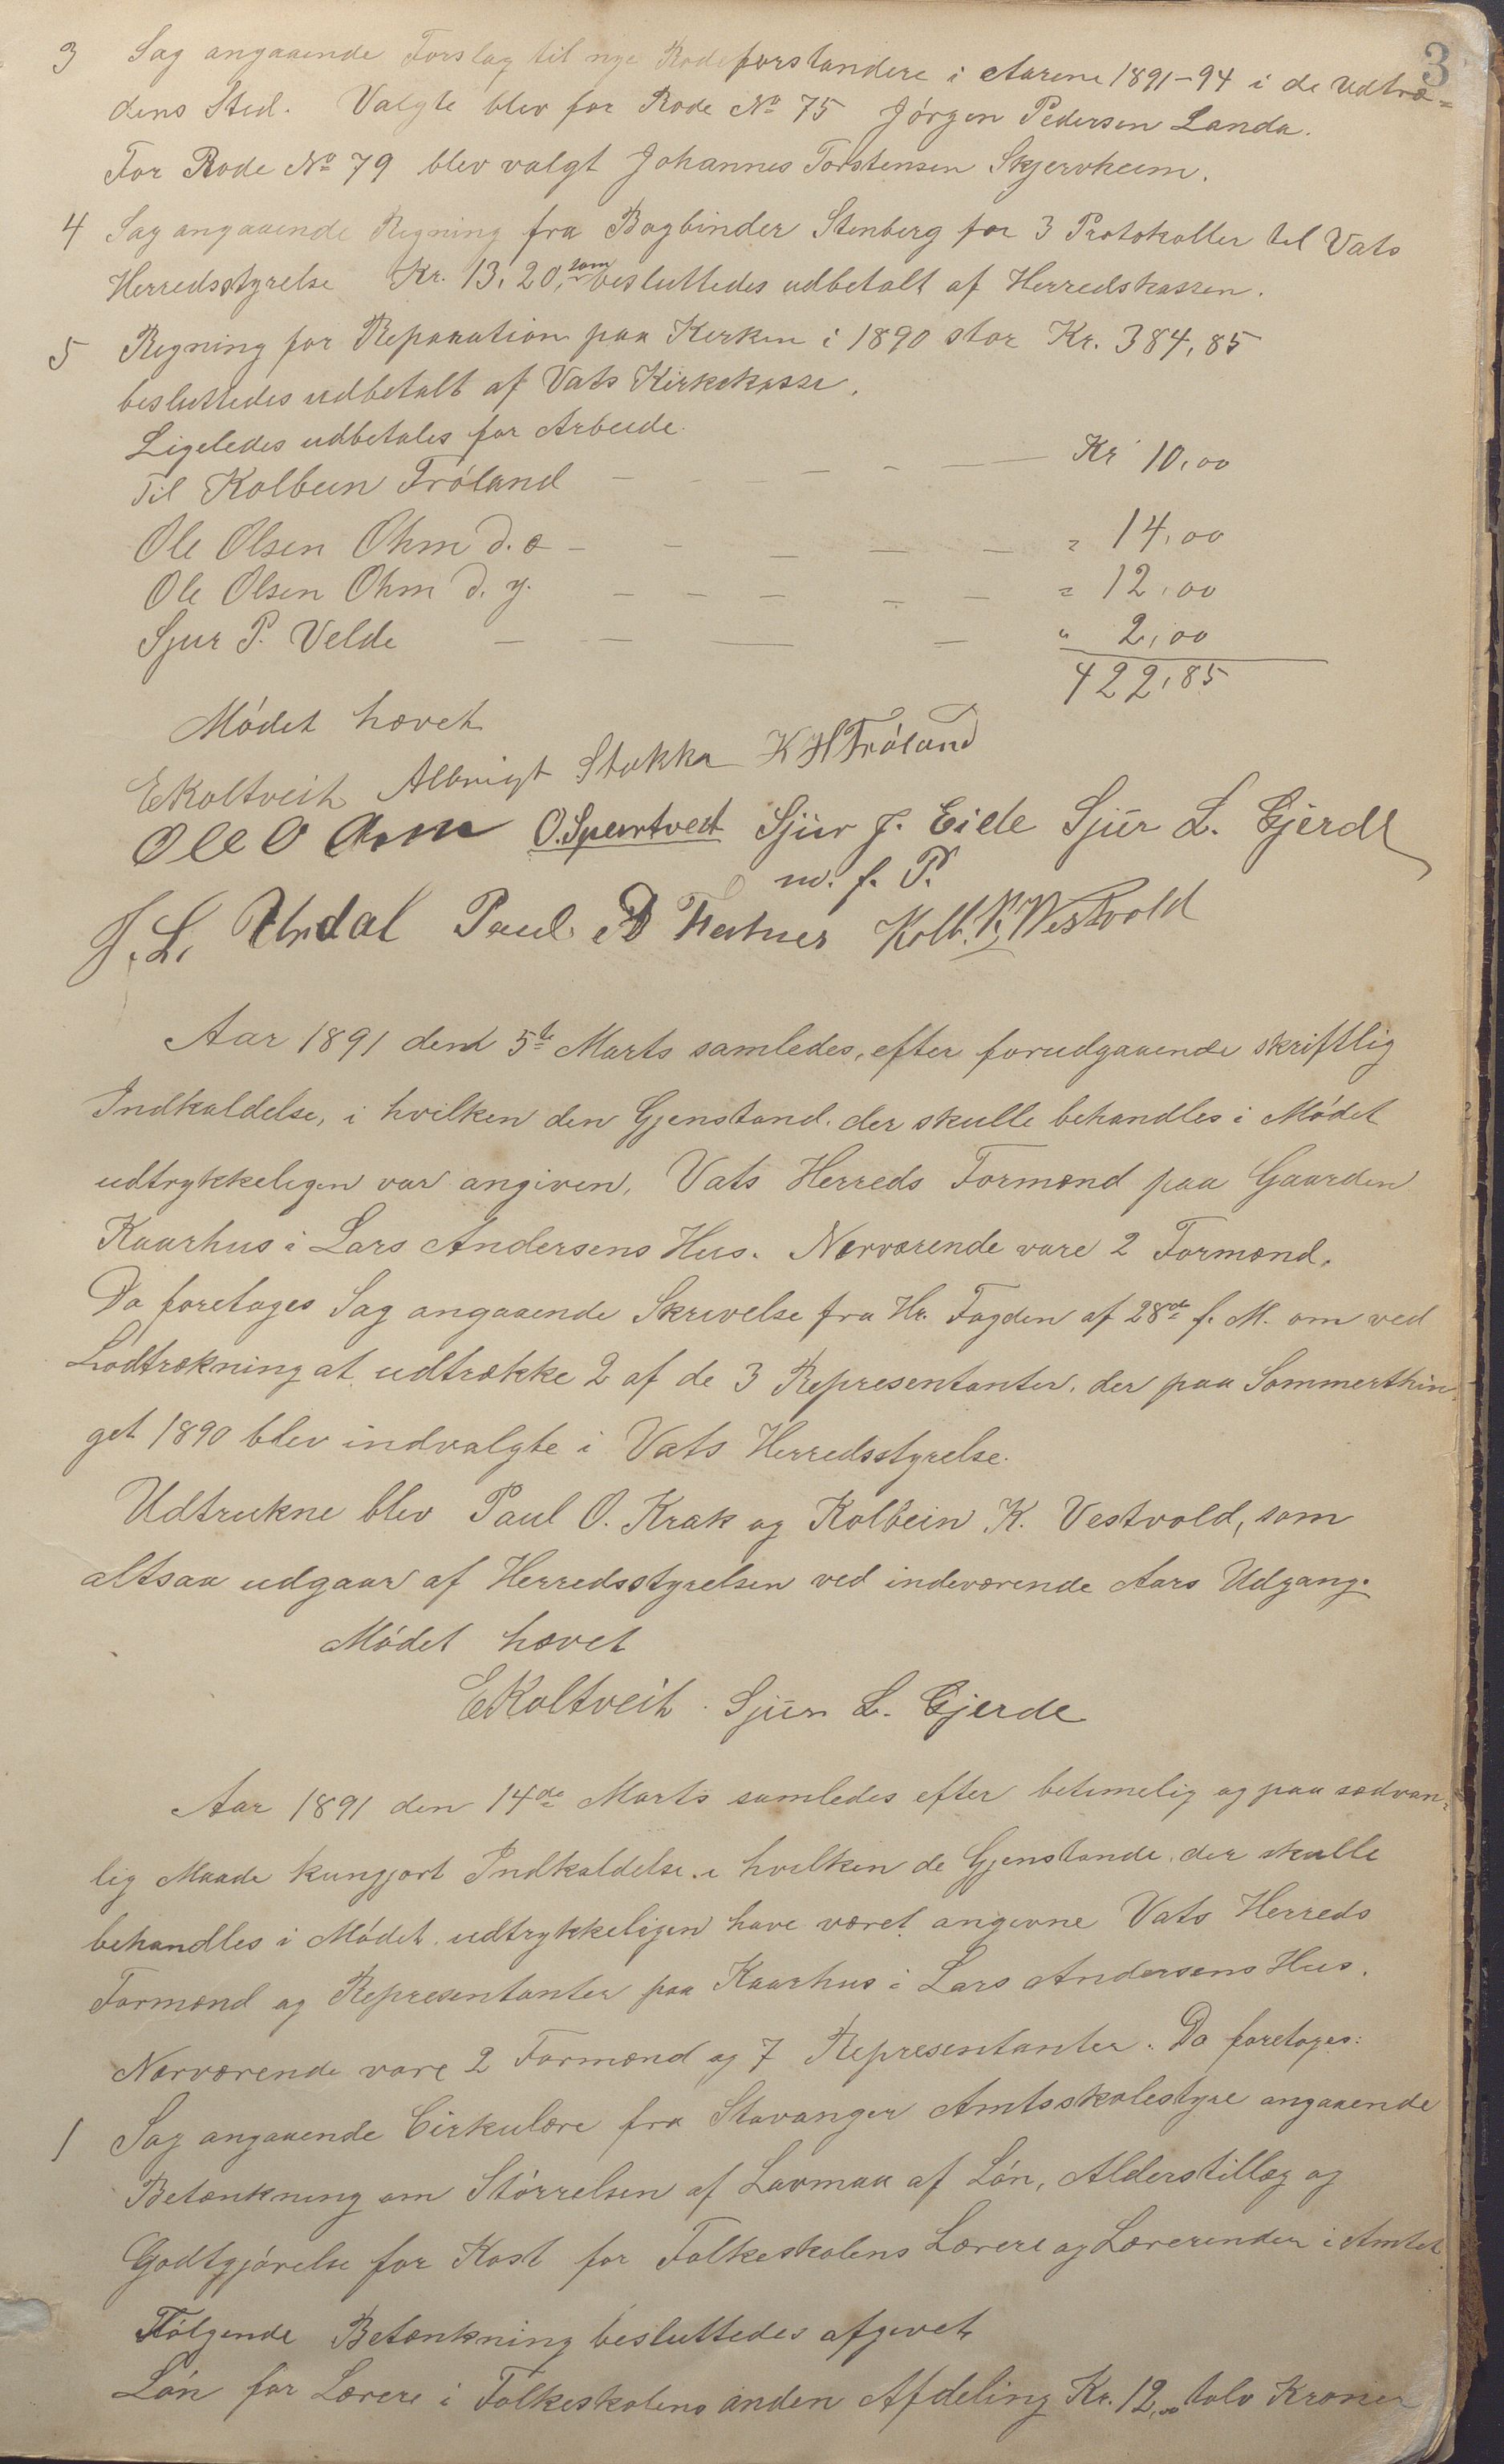 3
3 Sag angaaende Forslag til nye Rodeforstandere i Aarene 1891-94 i de Udtræ-
dens Sted. Valgte blev for Rode No 75 Jörgen Pedersen Landa.
For Rode No 79 blev valgt Johannes Torstensen Skjervheim.
4 Sag angaaende Regning fra Bogbinder Stenberg for 3 Protokoller til Vats
Herredsstyrelse Kr. 13,20, som besluttedes udbetalt af Herredskassen.
5 Regning for Reparation paa Kirken i 1890 stor Kr. 384,85
besluttedes udbetalt af Vats Kirkekasse.
Ligeledes udbetales for Arbeide
Til Kolbein Fröland - - - - - - Kr 10,00
Ole Olsen Ohm d. æ - - - - - " 14,00
Ole Olsen Ohm d. y. - - - - - " 12,00
Sjur P. Velde - - - - " 2,00
422,85
Mödet hævet
EKoltveit Albrigt Stakka K H Fröland
Ole O Aam O. Spurtvest Sjur J. Eide Sjur L. Gjerde
m. f. P.
J. L. Urdal Paul Kolb. K. Westvold
Aar 1891 den 5te Marts samledes, efter forudgaaende skriftlig
Indkaldelse, i hvilken den Gjenstand, der skulle behandles i Mödet
udtrykkeligen var angiven, Vats Herreds Formænd paa Gaarden
Kaarhus i Lars Andersens Hus. Nærværende vare 2 Formænd.
Da foretoges Sag angaaende Skrivelse fra Hr. Fogden af 28de f. M. om ved
Lodtrækning at udtrække 2 af de 3 Repræsentanter, der paa Sommerthin-
get 1890 blev indvalgte i Vats Herredsstyrelse.
Udtrukne blev Paul O. Krak og Kolbein K. Vestvold, som
altsaa udgaar af Herredsstyrelsen ved indeværende Aars Udgang.
Mödet hævet
EKoltveit. Sjur L. Gjerde
Aar 1891 den 14de Marts samledes efter betimelig og paa sædvan-
lig Maade kungjort Indkaldelse, i hvilken de Gjenstande, der skulle
behandles i Mödet, udtrykkeligen have været angivne Vats Herreds
Formænd og Repræsentanter paa Kaarhus i Lars Andersens Hus.
Nærværende vare 2 Formænd og 7 Repræsentanter. Da foretoges:
1 Sag angaaende Cirkulære fra Stavanger Amtsskolestyre angaaende
Betænkning om Störrelsen af Lavmaa af Lön, Alderstillæg og
Godtgjörelse for Kost for Folkeskolens Lærere og Lærerinder i Amtet.
Fölgende Betænkning besluttedes afgivet
Lön for Lærere i Folkeskolens anden Afdeling Kr. 12,00 tolv Kroner